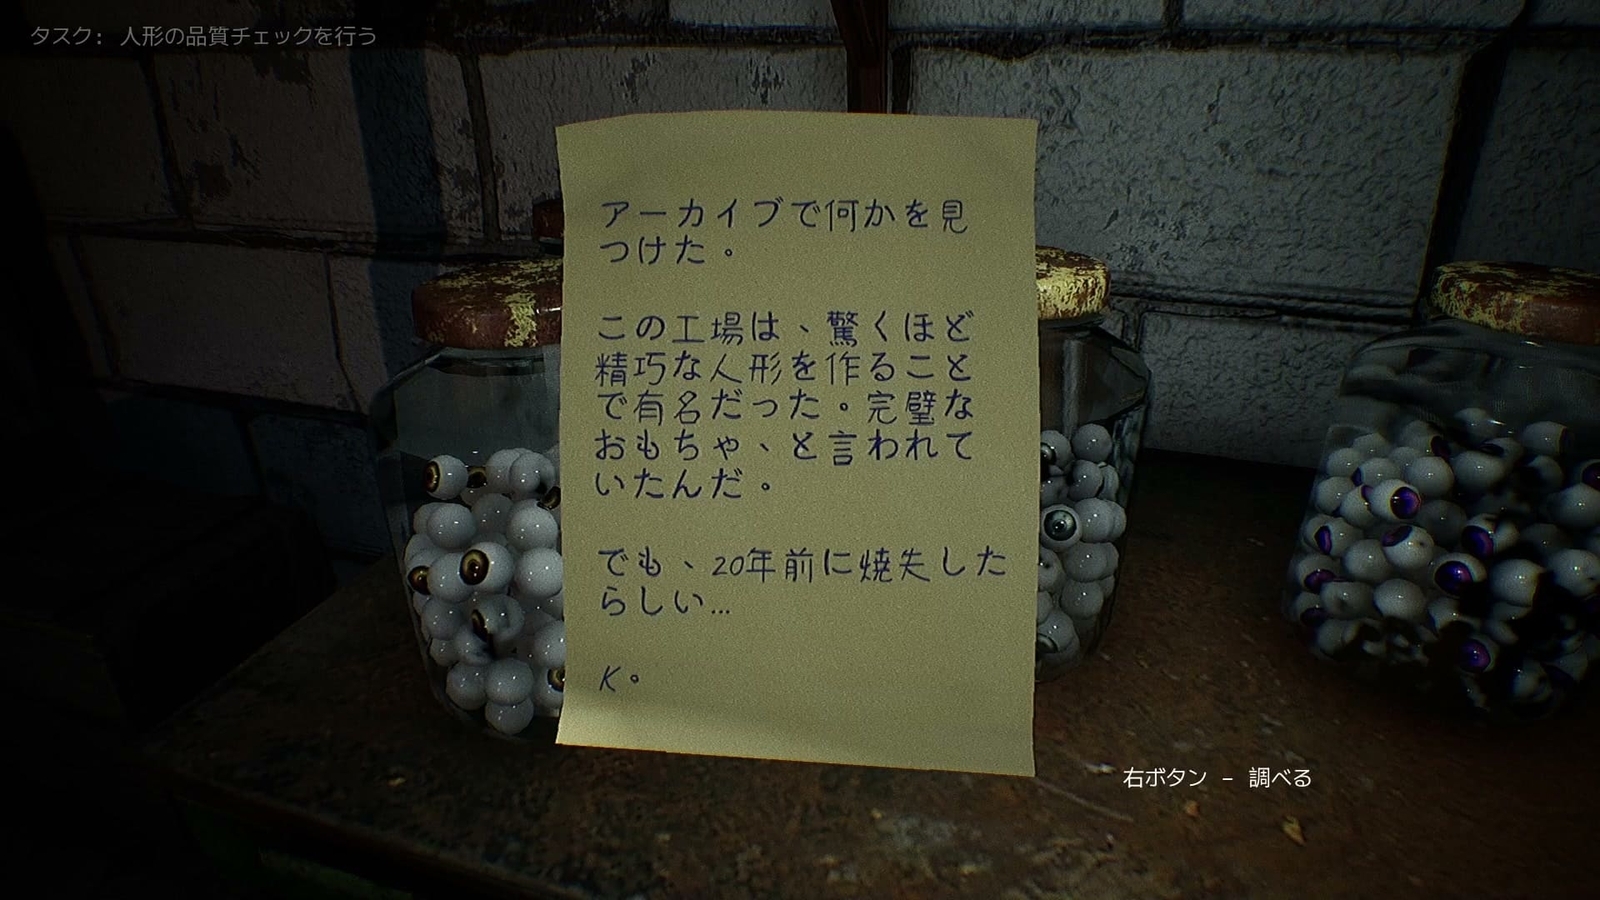 タスク: 人形の品質チェックを行う
アーカイブで何かを見
つけた。
この工場は、驚くほど
精巧な人形を作ること
で有名だった。完璧な
おもちゃ、と言われて
いたんだ。
でも、20年前に焼失した
らしい…
K。
右ボタン - 調べる